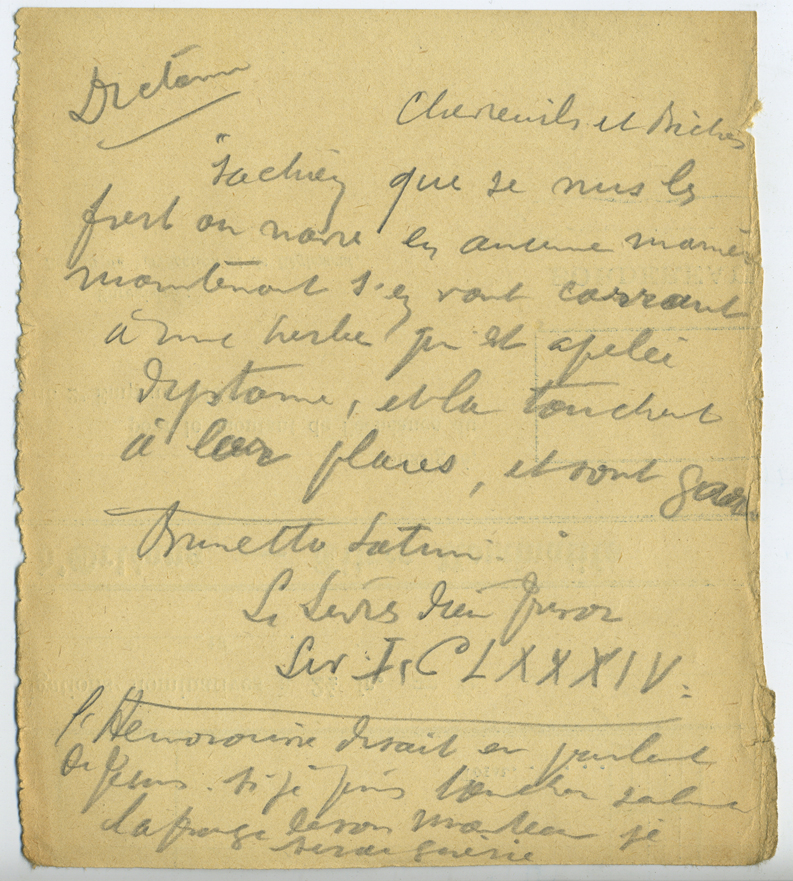 Dictame
Chevreuils et Biches
"Sachiez que se nus les
fiert ou navre en aucune manie
maintenant s'en vont corrant
à une herbe qui est apelée
dyptame, et la touchent
à lor plaies, et sont gari.
Brunetto Latini. "
Li Livres dou Tresor
Liv. I, CLXXXIV.
l'Hémoroïsse disait en parlant
de Jésus. Si je puis toucher
la frange de son manteau je
serai guérie